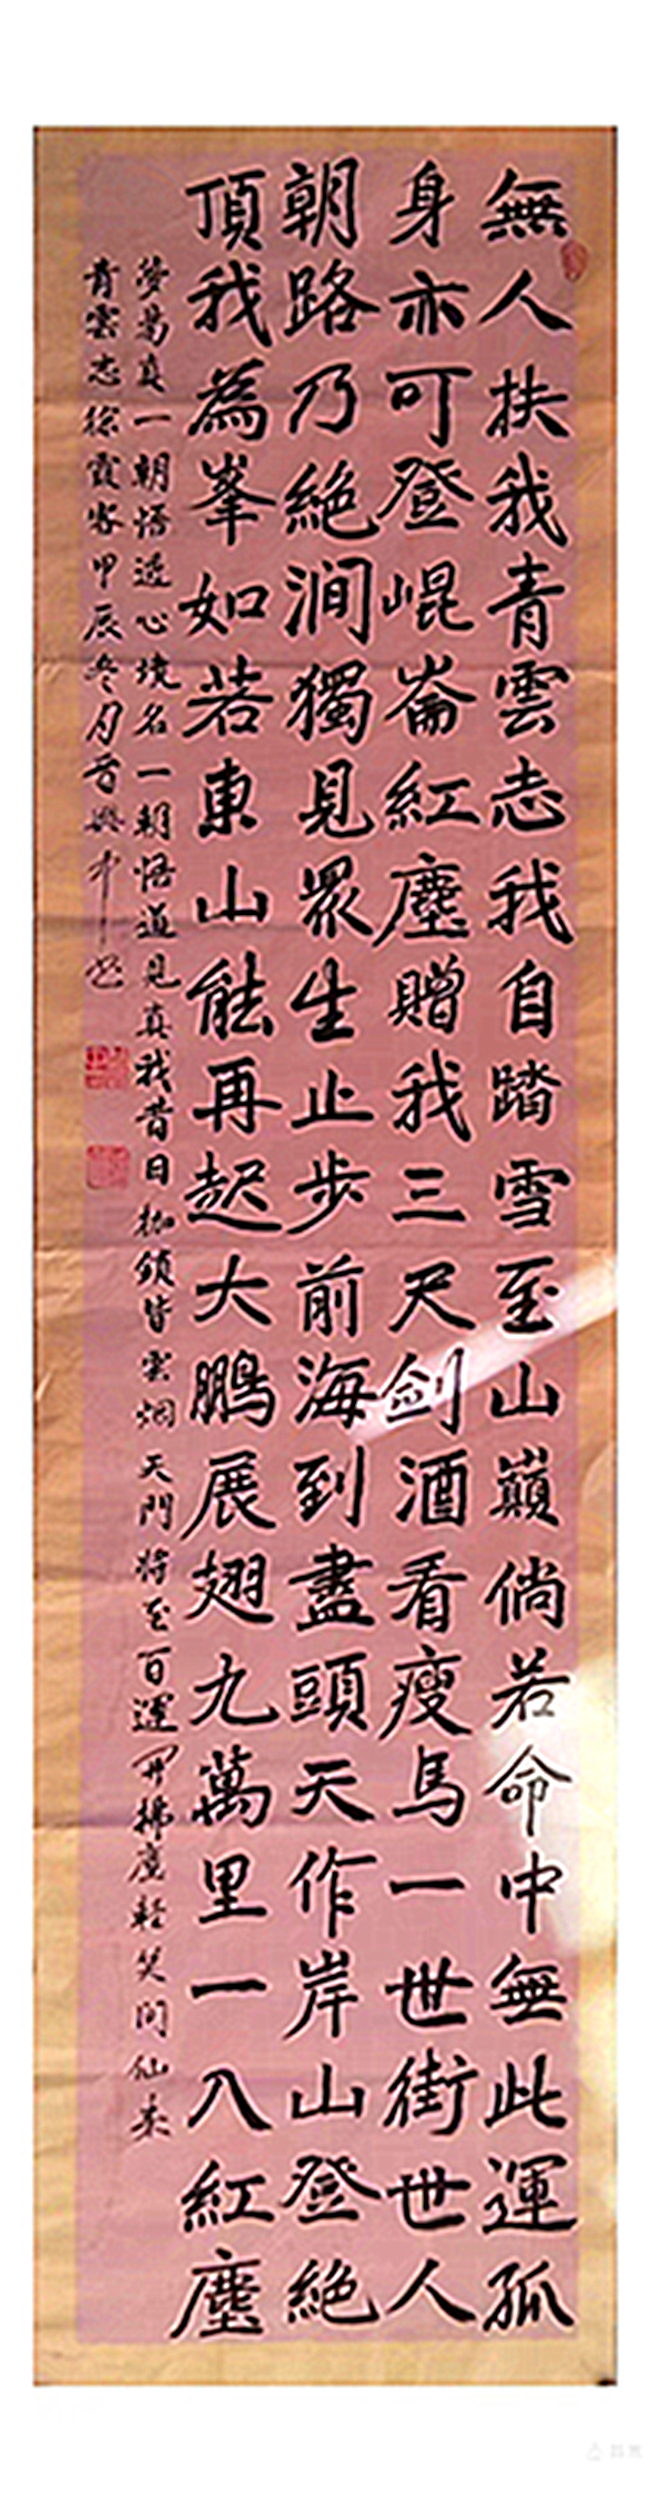 無人扶我青雲志我自踏雪至山巔倘若命中無此運孤
身亦可登崐崙紅塵贈我三尺剑酒看瘦馬一世街世人
朝路乃絶澗獨見眾生止步前海到盡頭天作岸山登絶
頂我為峯如若東山能再起大鵬展翅九萬里一入紅塵
夢易真一朝悟透心境名一朝悟道見真我昔日枷鎖皆雲烟天門將至百運開拂塵輕笑問仙来
青雲志徐霞客甲辰冬月晉興中書